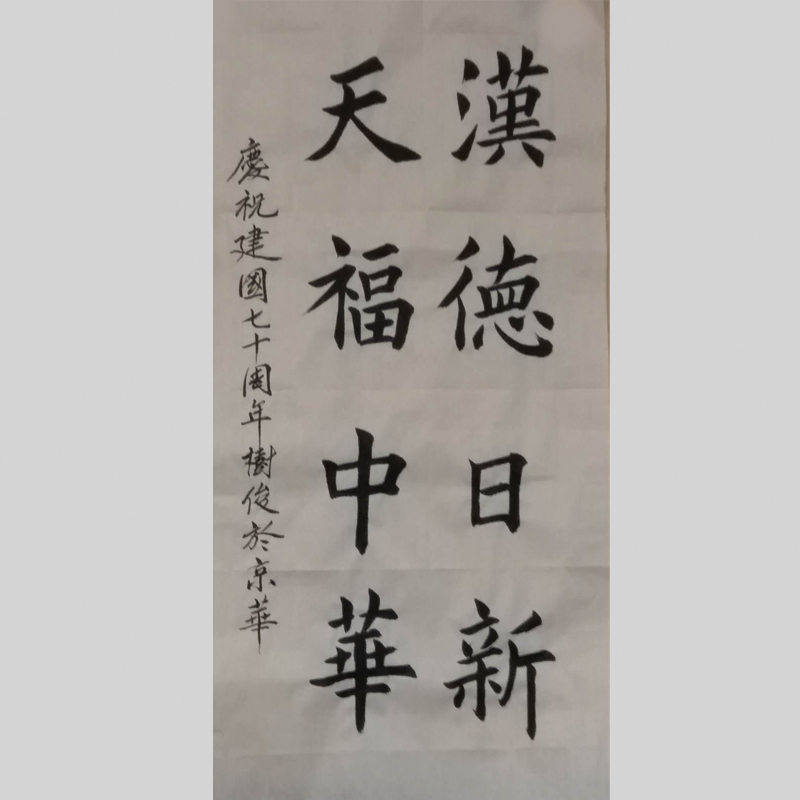 漢德日新
天福中華
慶祝建國七十周年樹俊於京華